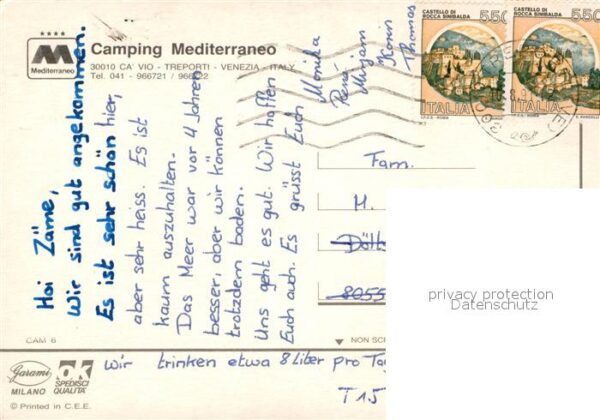 ★★★★
M
Mediterraneo
Camping Mediterraneo
30010 CA' VIO - TREPORTI - VENEZIA - ITALY
Tel. 041 - 966721 / 966722
Hoi Zäme,
Wir sind gut angekommen.
Es ist sehr schön hier,
aber sehr heiss. Es ist
kaum auszuhalten.
Das Meer war vor 4 Jahren
besser, aber wir können
trotzdem baden.
Uns geht es gut. Wir hoffen
Euch auch. Es grüsst Euch
Monika
René
Mirjam
Thomas
wir trinken etwa 8 Liter pro Tag
T 1.5
CASTELLO DI
ROCCA SINIBALDA
550
ITALIA
I.P.Z.S. - ROMA
CASTELLO DI
ROCCA SINIBALDA
550
ITALIA
I.P.Z.S. - ROMA
Fam.
M.
8055
privacy protection
Datenschutz
CAM 6
▼ NON SC
Garami
MILANO
OK
SPEDISCI
QUALITA'
© Printed in C.E.E.